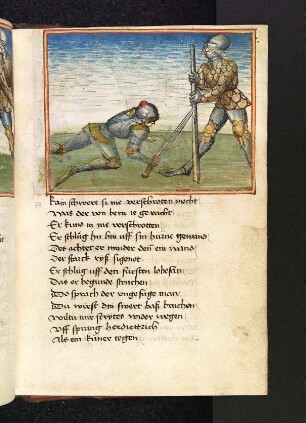 kain schwert si me verschroten mocht
Was der von bern ie gevacht
Er kund in nie verschrotten
Er schlůg im hin uff sin hurne gewand
Des achtet er minder den ein wand
Der starck ryß sigenot
Er schlůg uff den fürsten lobesan
Das er begunde struchen
Do sprach der ungefüge man
Du můst din swert baß bruchen
wiltu mir strytes wider wegen
Uff sprang her diettrich
Als ein küner tegen